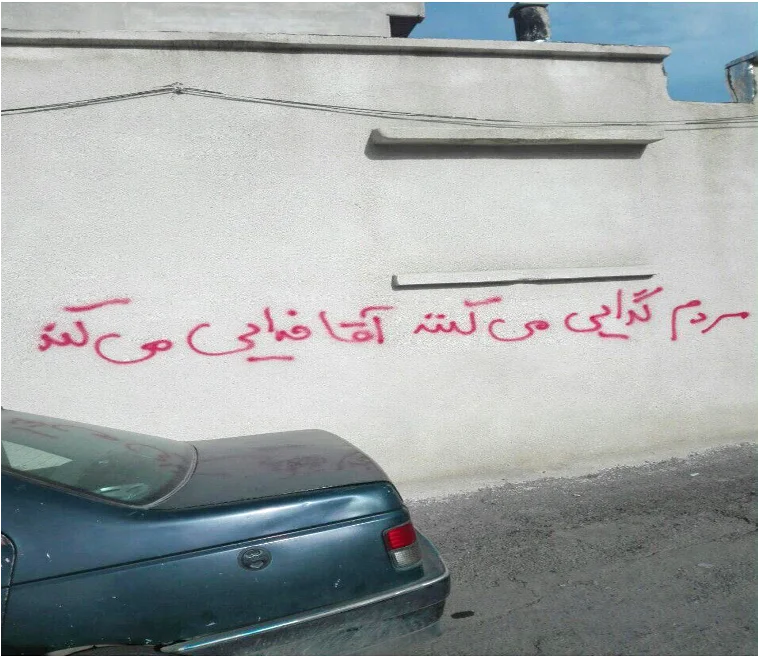 مردم گدایی می کنند آقا خدایی می کند